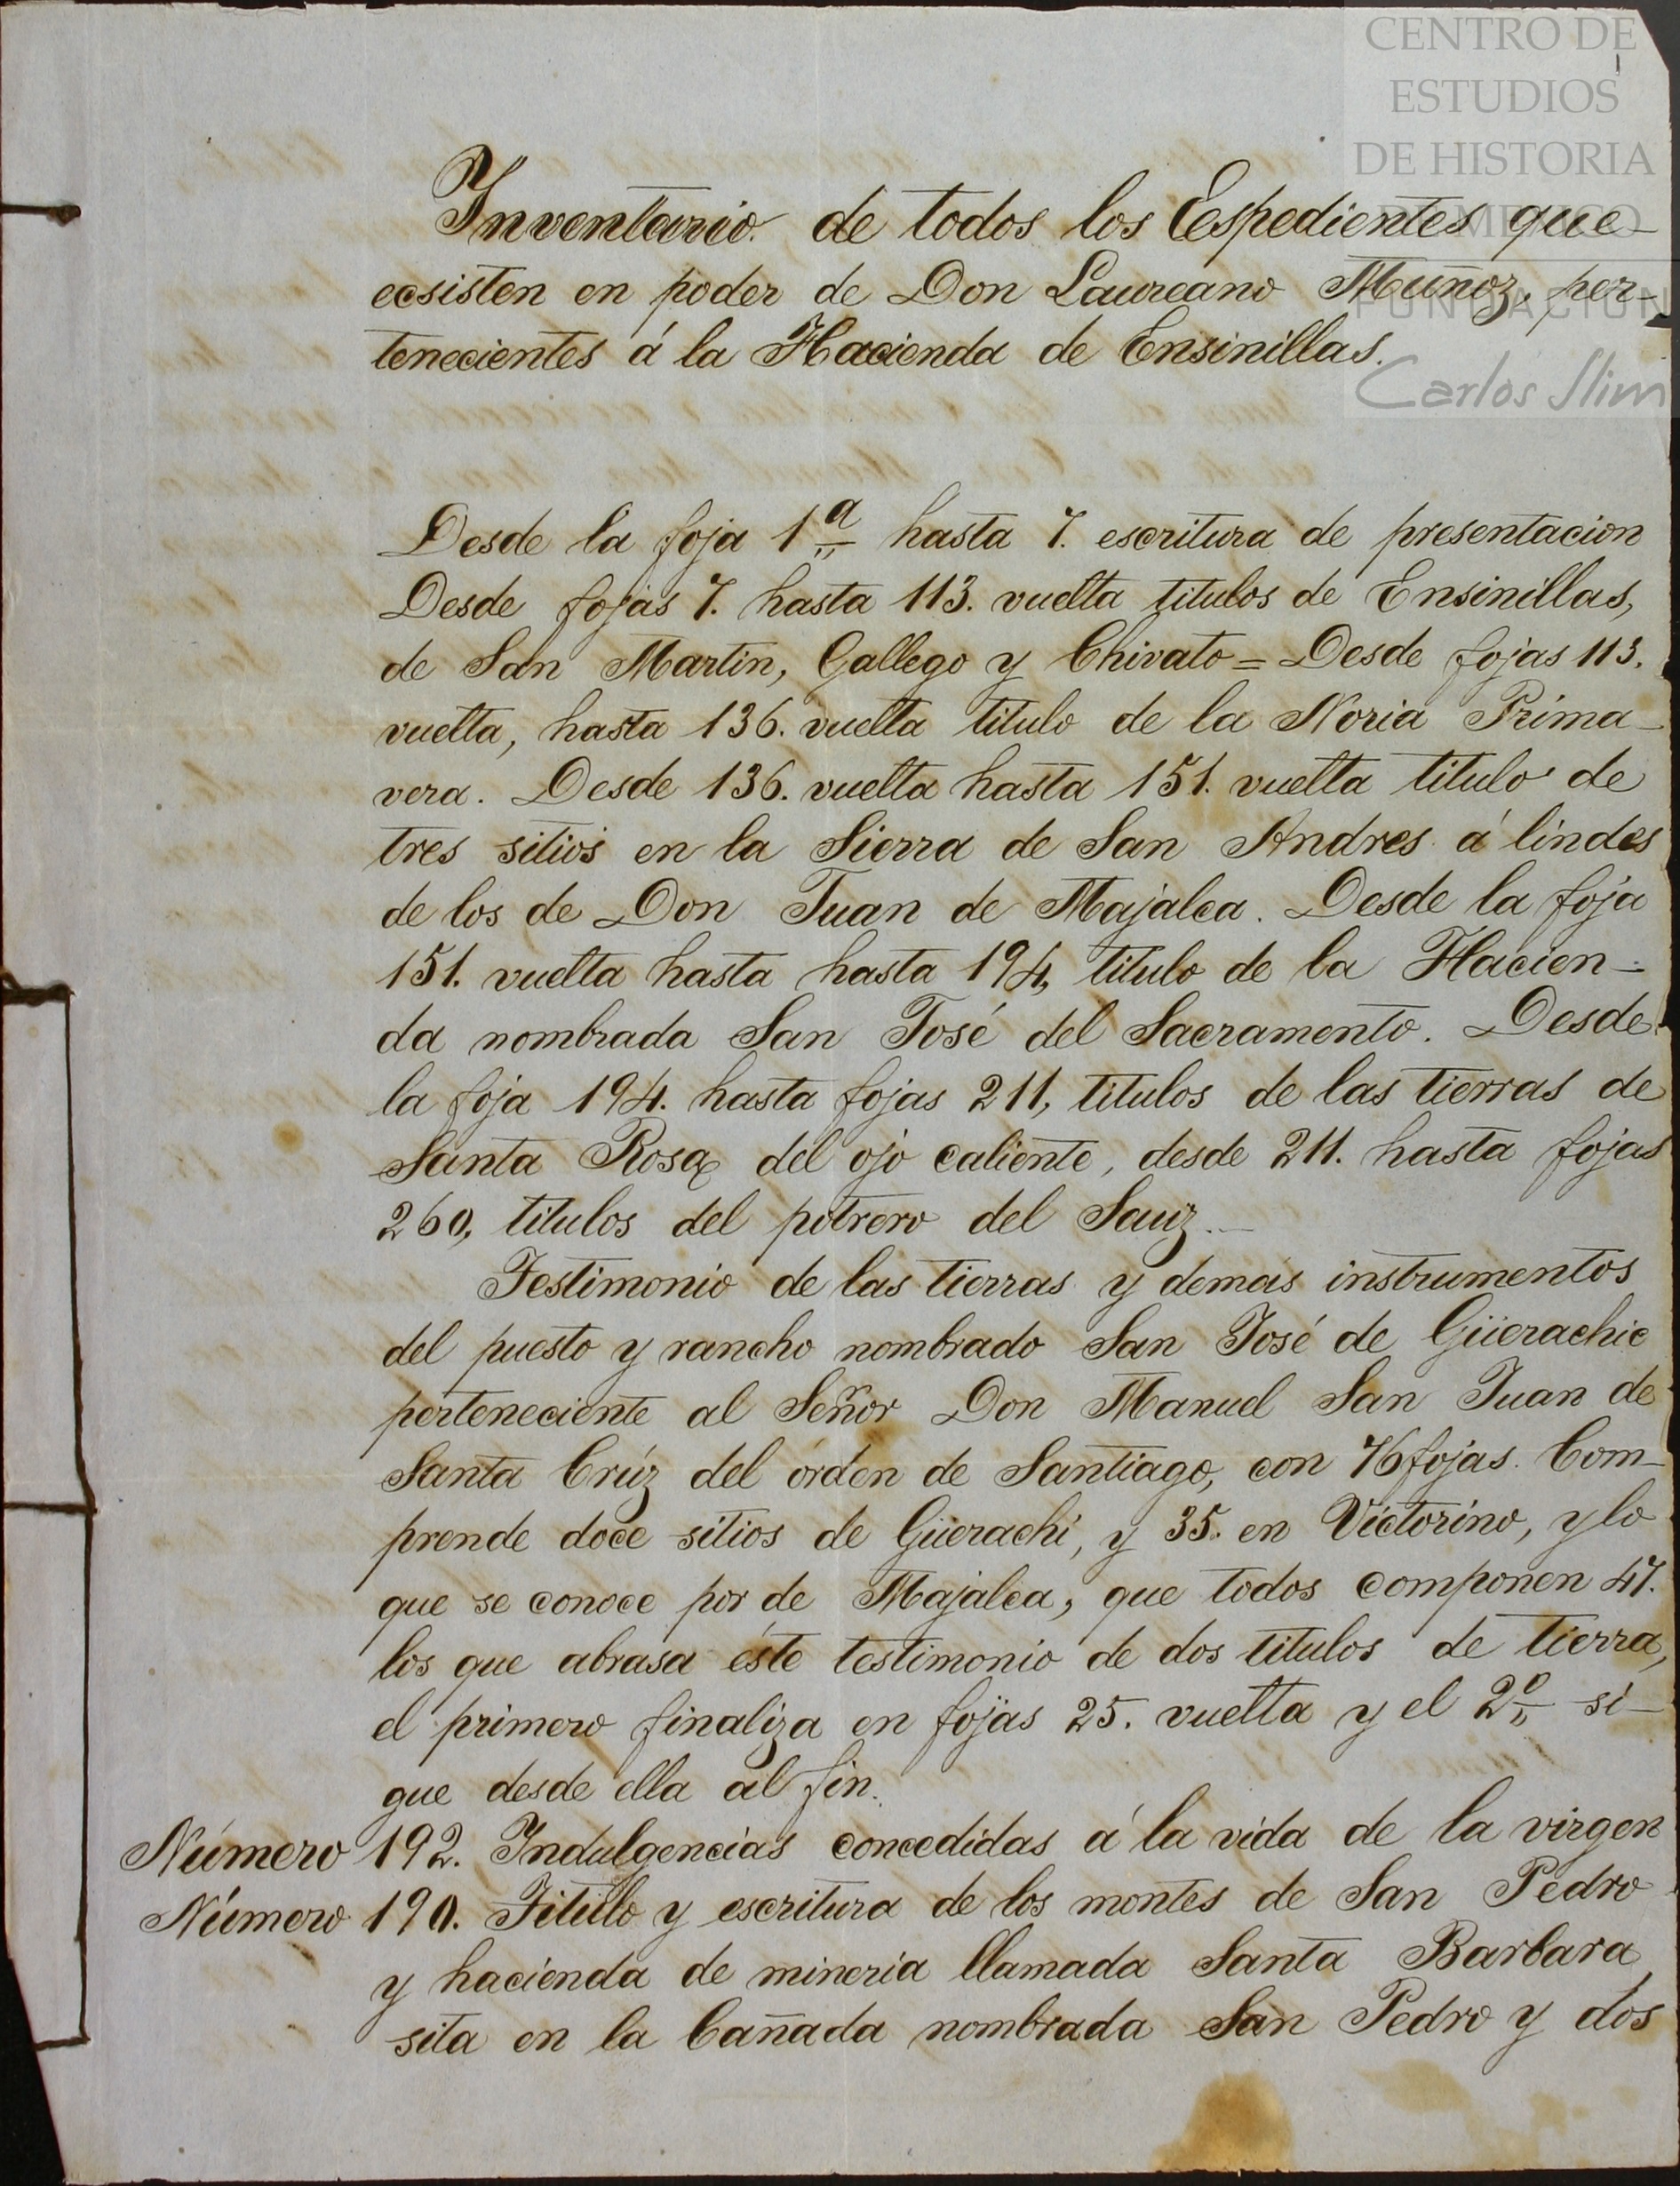 CENTRO DE
ESTUDIOS
DE HISTORIA
DE MEXICO
FUNDACION
Carlos Slim
1
Inventario de todos los Espedientes que
ecsisten en poder de Don Laureano Muñoz, per-
tenecientes á la Hacienda de Ensinillas.
Desde la foja 1ª hasta 7. escritura de presentacion
Desde fojas 7. hasta 113. vuelta titulos de Ensinillas,
de San Martin, Gallego y Chivato = Desde fojas 113.
vuelta, hasta 136. vuelta titulo de la Noria Prima-
vera. Desde 136. vuelta hasta 151. vuelta titulo de
tres sitios en la Sierra de San Andres á lindes
de los de Don Juan de Majalca. Desde la foja
151. vuelta hasta hasta 194, titulo de la Hacien-
da nombrada San José del Sacramento. Desde
la foja 194. hasta fojas 211, titulos de las tierras de
Santa Rosa del ojo caliente, desde 211. hasta fojas
260, titulos del potrero del Sauz.
Testimonio de las tierras y demas instrumentos
del puesto y rancho nombrado San José de Güerachic
perteneciente al Señor Don Manuel San Juan de
Santa Crúz del órden de Santiago, con 76 fojas. Com-
prende doce sitios de Güerachi, y 35. en Victorino, y lo
que se conoce por de Majalca, que todos componen 47.
los que abrasa éste testimonio de dos titulos de tierra,
el primero finaliza en fojas 25. vuelta y el 2º si-
gue desde ella al fin.
Número 192. Indulgencias concedidas á la vida de la virgen
Número 190. Titulo y escritura de los montes de San Pedro
y hacienda de mineria llamada Santa Barbara
sita en la Cañada nombrada San Pedro y dos